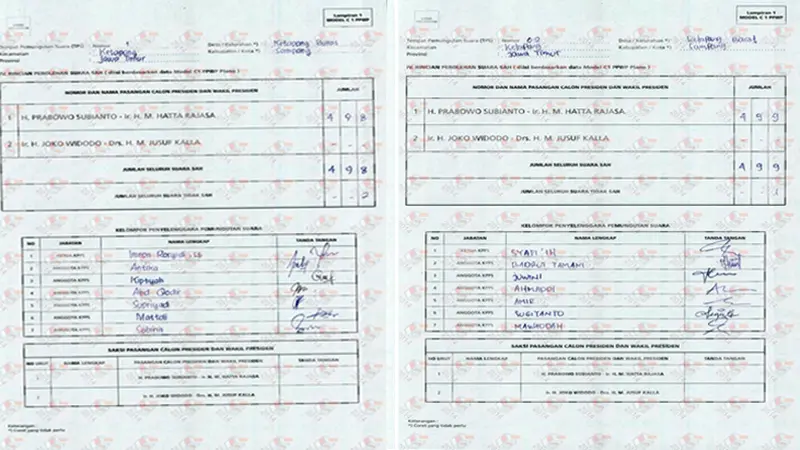 Lampiran 1
MODEL C 1 PPWP
Tempat Pemungutan Suara (TPS) : Nomor : 1
Desa / Kelurahan *) : Ketapang Barat
Kecamatan : Ketapang
Kabupaten / Kota *) : Sampang
Provinsi : Jawa Timur
IV. RINCIAN PEROLEHAN SUARA SAH ( diisi berdasarkan data Model C1 PPWP Plano )
NOMOR DAN NAMA PASANGAN CALON PRESIDEN DAN WAKIL PRESIDEN JUMLAH
1 H. PRABOWO SUBIANTO - Ir. H. M. HATTA RAJASA 4 9 8
2 Ir. H. JOKO WIDODO - Drs. H. M. JUSUF KALLA - - -
JUMLAH SELURUH SUARA SAH 4 9 8
JUMLAH SELURUH SUARA TIDAK SAH - - 2
KELOMPOK PENYELENGGARA PEMUNGUTAN SUARA
NO JABATAN NAMA LENGKAP TANDA TANGAN
1 KETUA KPPS
2 ANGGOTA KPPS Antika
3 ANGGOTA KPPS Kiptyah
4 ANGGOTA KPPS Abd Qodir
5 ANGGOTA KPPS Supriyadi
6 ANGGOTA KPPS Mattdi
7 ANGGOTA KPPS Sabnia
SAKSI PASANGAN CALON PRESIDEN DAN WAKIL PRESIDEN
NO URUT NAMA LENGKAP PASANGAN CALON PRESIDEN DAN WAKIL PRESIDEN TANDA TANGAN
1 H. PRABOWO SUBIANTO - Ir. H. M. HATTA RAJASA
2 Ir. H. JOKO WIDODO - Drs. H. M. JUSUF KALLA
Keterangan :
*) Coret yang tidak perlu
Lampiran 1
MODEL C 1 PPWP
Tempat Pemungutan Suara (TPS) : Nomor : 02
Desa / Kelurahan *) : Ketapang Barat
Kecamatan : Ketapang
Kabupaten / Kota *) : Sampang
Provinsi : Jawa Timur
IV. RINCIAN PEROLEHAN SUARA SAH ( diisi berdasarkan data Model C1 PPWP Plano )
NOMOR DAN NAMA PASANGAN CALON PRESIDEN DAN WAKIL PRESIDEN JUMLAH
1 H. PRABOWO SUBIANTO - Ir. H. M. HATTA RAJASA 4 9 9
2 Ir. H. JOKO WIDODO - Drs. H. M. JUSUF KALLA - - -
JUMLAH SELURUH SUARA SAH 4 9 9
JUMLAH SELURUH SUARA TIDAK SAH - - 1
KELOMPOK PENYELENGGARA PEMUNGUTAN SUARA
NO JABATAN NAMA LENGKAP TANDA TANGAN
1 KETUA KPPS
2 ANGGOTA KPPS BADRUT TAMAM
3 ANGGOTA KPPS JUWAINI
4 ANGGOTA KPPS AHMADDI
5 ANGGOTA KPPS AMIE
6 ANGGOTA KPPS SUGIYANTO
7 ANGGOTA KPPS MAWADDAH
SAKSI PASANGAN CALON PRESIDEN DAN WAKIL PRESIDEN
NO URUT NAMA LENGKAP PASANGAN CALON PRESIDEN DAN WAKIL PRESIDEN TANDA TANGAN
1 H. PRABOWO SUBIANTO - Ir. H. M. HATTA RAJASA
2 Ir. H. JOKO WIDODO - Drs. H. M. JUSUF KALLA
Keterangan :
*) Coret yang tidak perlu